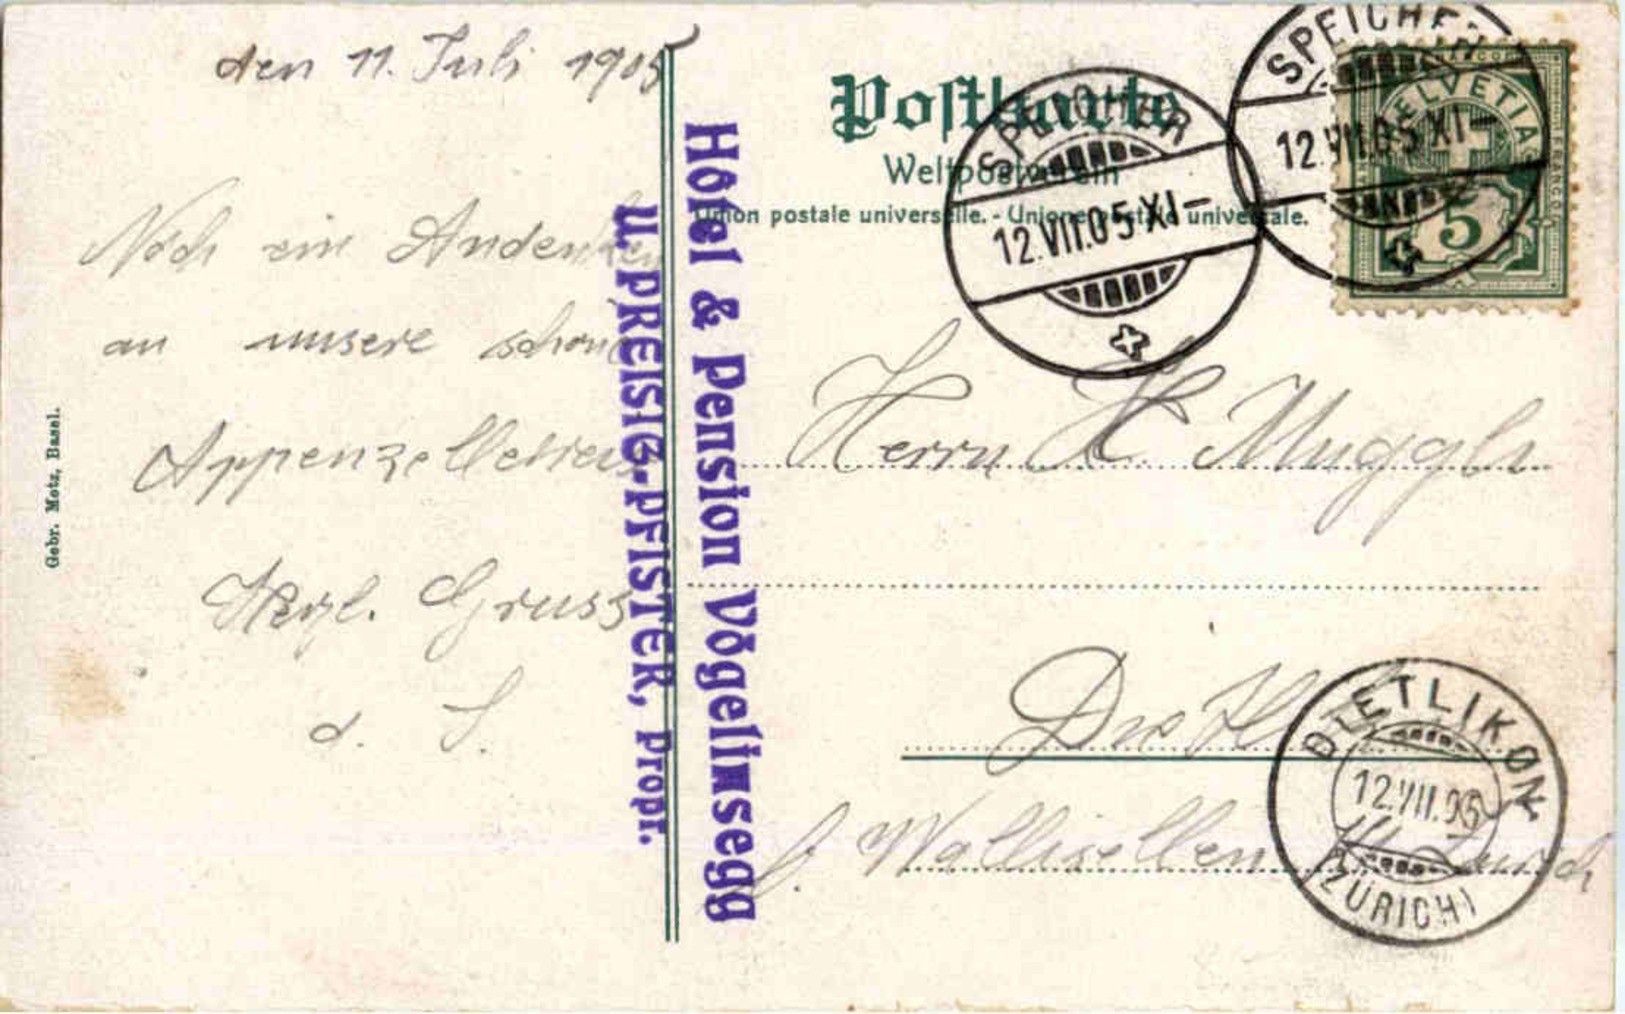 den 11. Juli 1905
Noch ein Andenken
an unsere schöne
Herzl. Gruss
d. S.
Gebr. Metz, Basel.
Hôtel & Pension Vögelinsegg
U. PREISIG-PFISTER, Propr.
Postkarte
Weltpostverein
Union postale universelle. - Unione postale universale.
SPEICHER
12.VII.05 XI-
SPEICHER
12.VII.05 XI-
HELVETIA
FRANCO
5
Herrn H. Muggli
DIETLIKON
12.VII.05
(ZÜRICH)
b. Wallisellen Zürich